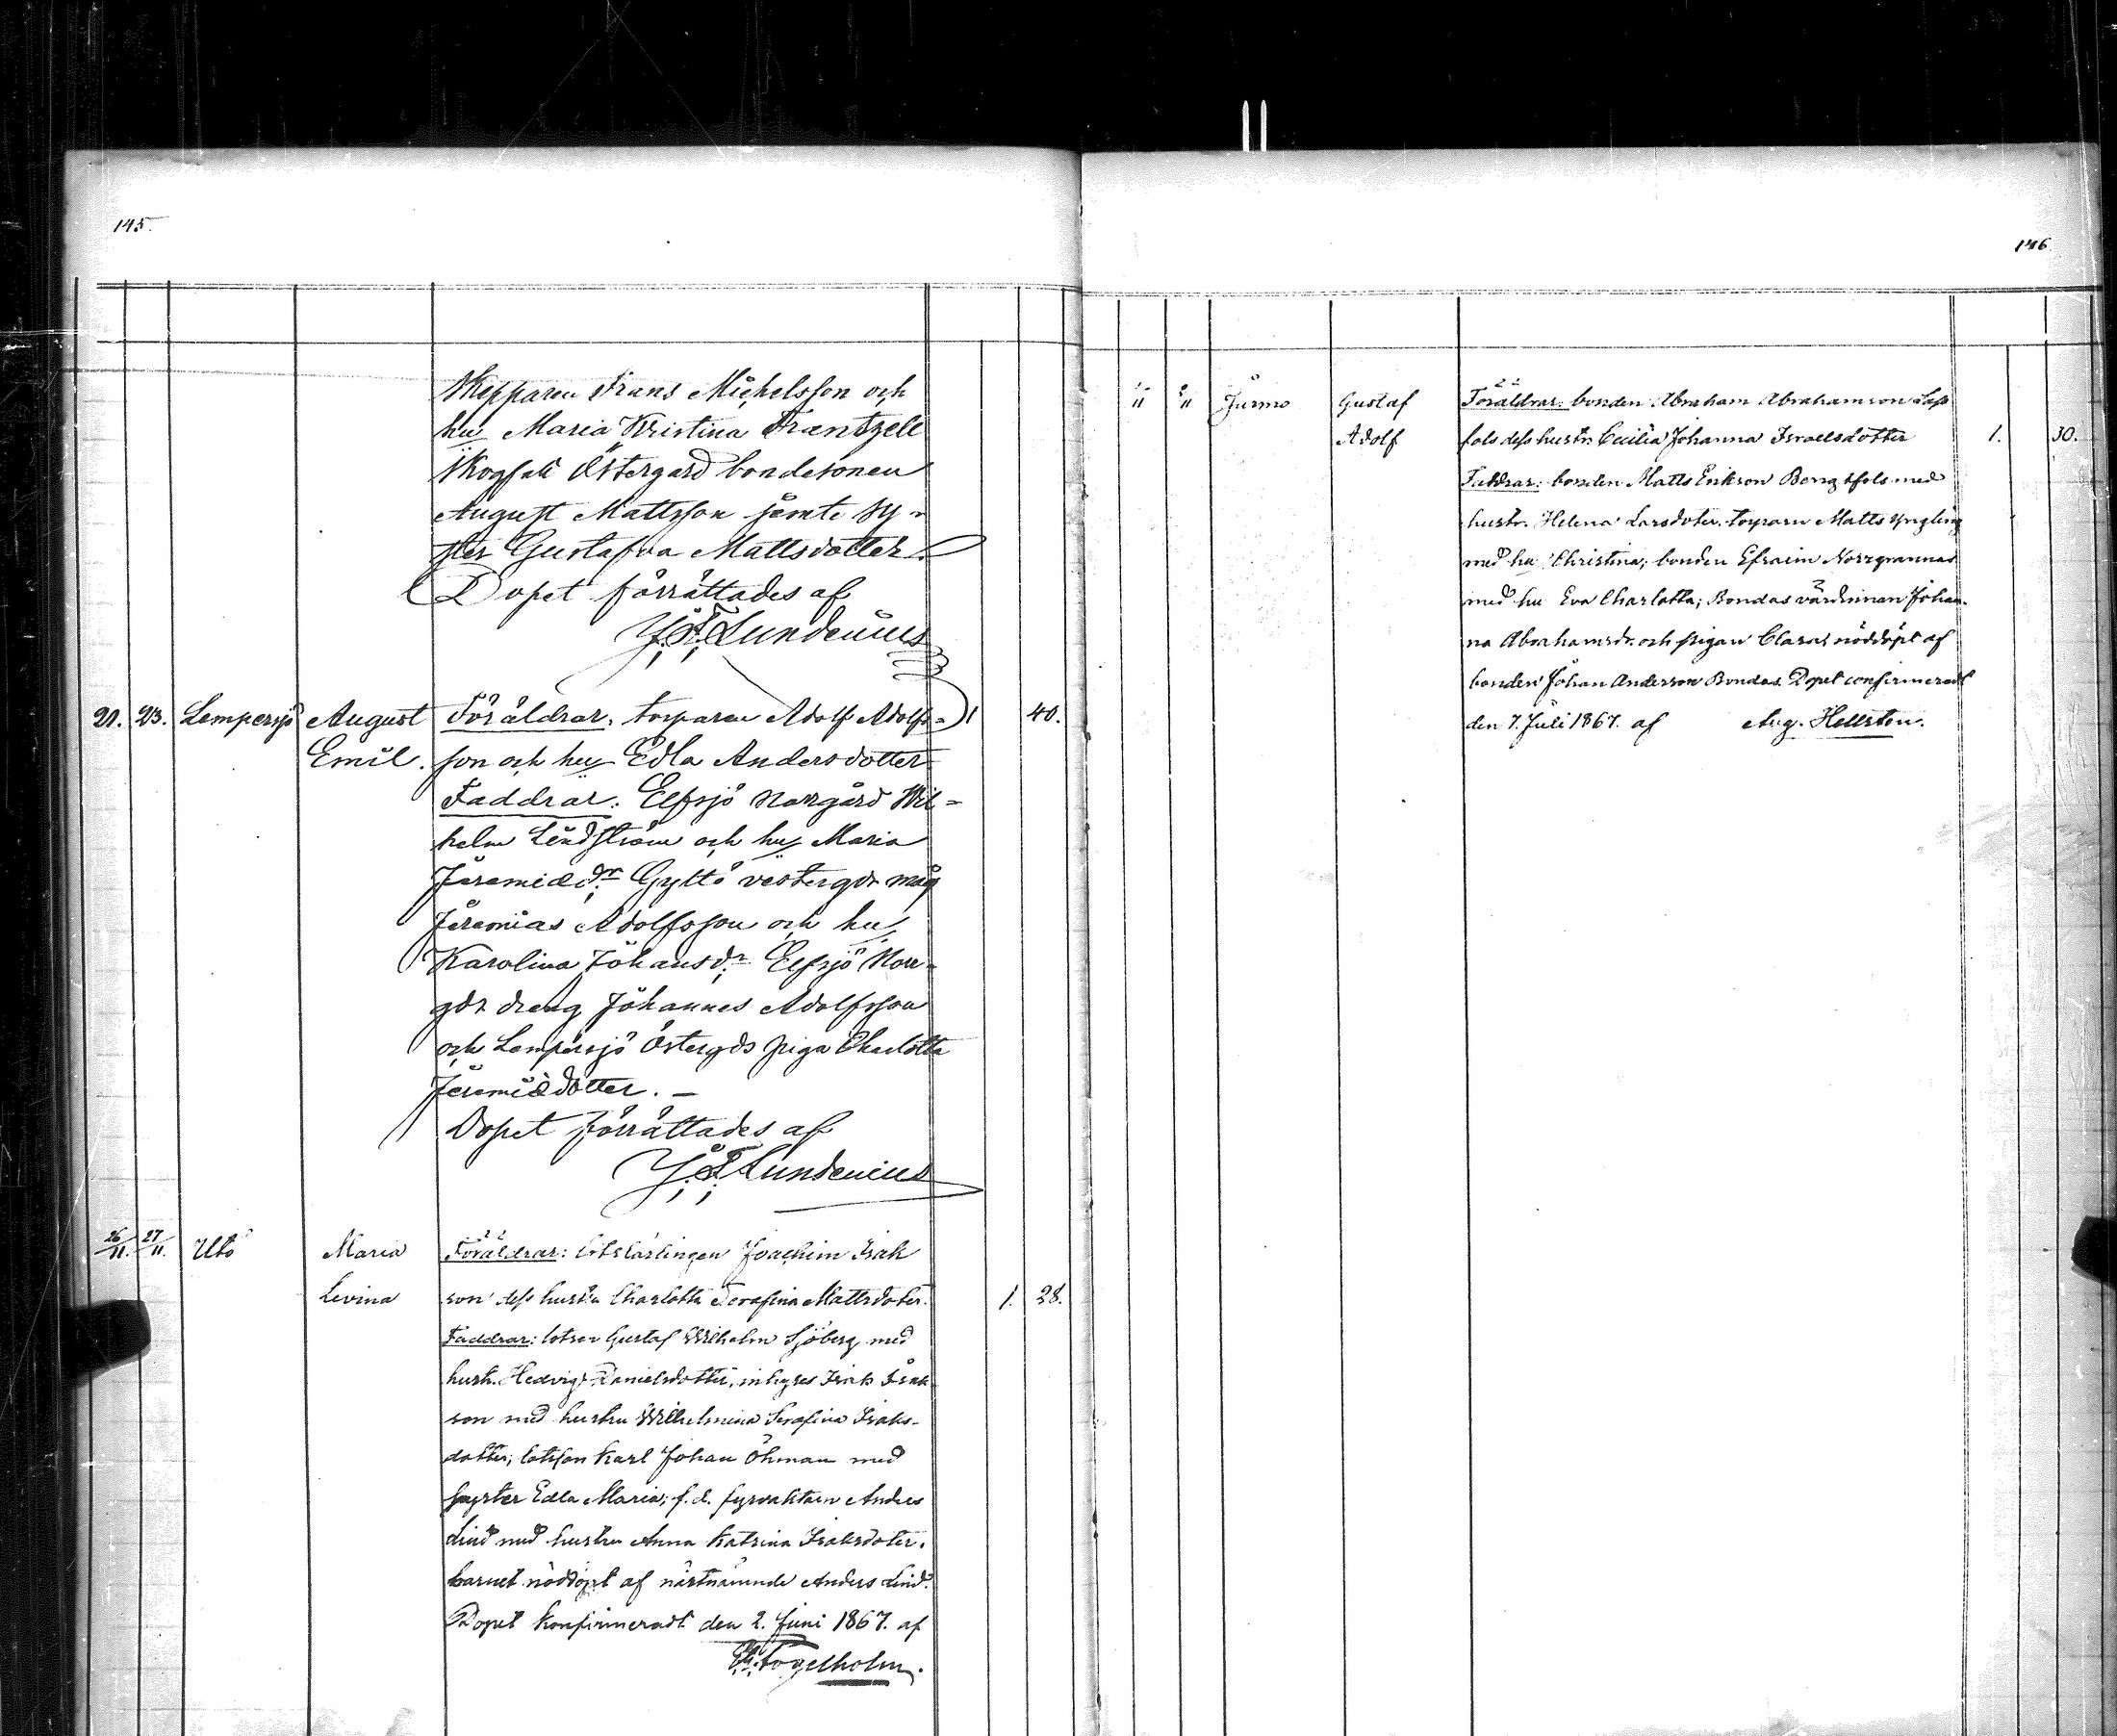 145.
Skepparen Frans Michelsson och
hu Maria Kristina Frantzell
Skogsal Östergård bondesonen
August Mattsson jemte sy-
ster Gustafva Mattsdotter
Dopet förrättades af
J. F. Lundenius
21. 23. Lempersjö August Föräldrar, torparen Adolf Adolfs- 1 40.
Emil. son och hu Edla Andersdotter
Faddrar. Elfsjö Norrgård Wil-
helm Lindström och hu Maria
Jeremiædr. Gyltö vestergds måg
Jeremias Adolfsson och hu
Karolina Johansdr. Elfsjö Norr-
gds dreng Johannes Adolfsson
och Lempersjö Östergds piga Charlotta
Jeremiædotter. –
Dopet förrättades af
J. F. Lundenius
26/11. 27/11. Utö Maria Föräldrar: lotslärlingen Joachim Isak
Levina son dess hustru Charlotta Serafina Mattsdoter. 1. 28.
Faddrar: lotsen Gustaf Wilhelm Sjöberg med
hustr. Hedvig Danielsdotter, inhyses Isak Isak
son med hustru Wilhelmina Serafina Isaks-
dotter; lotsson Karl Johan Öhman med
syster Edla Maria; f.d. fyrvaktaren Anders
Lind med hustru Anna Katrina Isaksdoter.
barnet nöddöpt af näst nämnde Anders Lind.
Dopet konfirmeradt den 2. Juni 1867. af
Fogelholm.
146
Jurmo Gustaf Föräldrar: bonden Abraham Abrahamson
Adolf dess hustr. Cecilia Johanna Israelsdotter 1. 30.
Faddrar: bonden Matts Erikson med
hustr. Helena Larsdoter. torparn Matts Yngling
med hu Christina; bonden Efraim Norrgrannas
med hu Eva Charlotta; Bondas värdinnan Johan-
na Abrahamsdr. och pigan Clara; nöddöpt af
bonden Johan Anderson Bondas. Dopet confirmeradt
den 7. Juli 1867. af Aug. Hellsten.